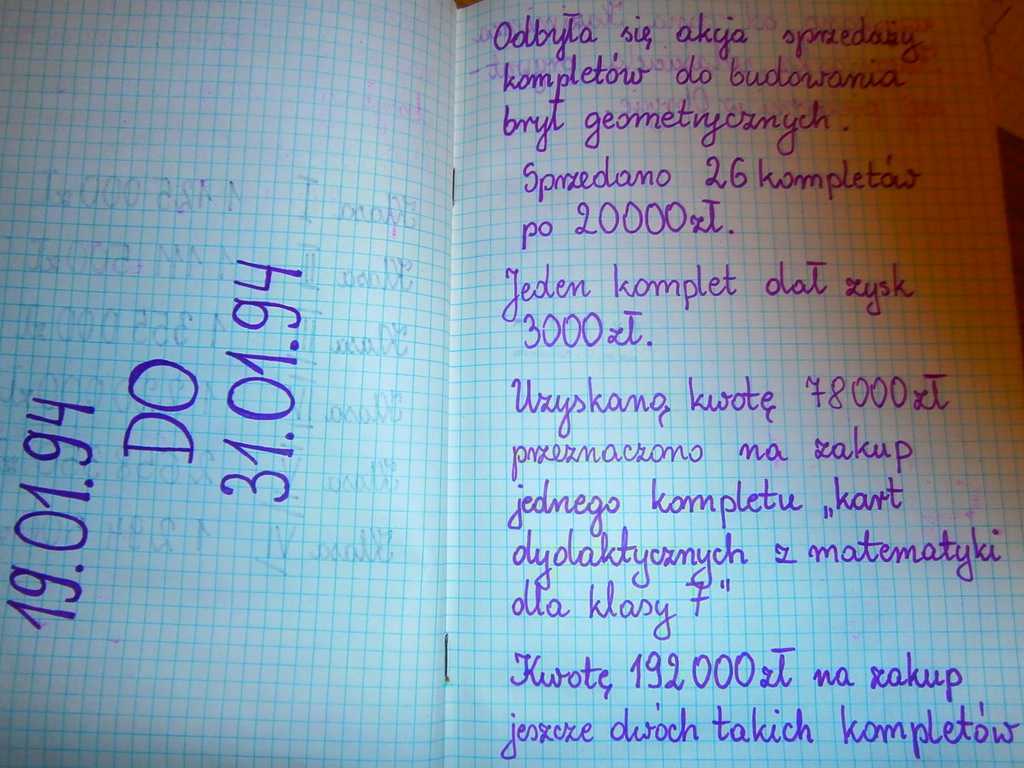 19.01.94
DO
31.01.94
Odbyła się akcja sprzedaży
kompletów do budowania
brył geometrycznych.
Sprzedano 26 kompletów
po 20000zł.
Jeden komplet dał zysk
3000zł.
Uzyskaną kwotę 78000zł
przeznaczono na zakup
jednego kompletu „kart
dydaktycznych z matematyki
dla klasy 7"
Kwotę 192000zł na zakup
jeszcze dwóch takich kompletów